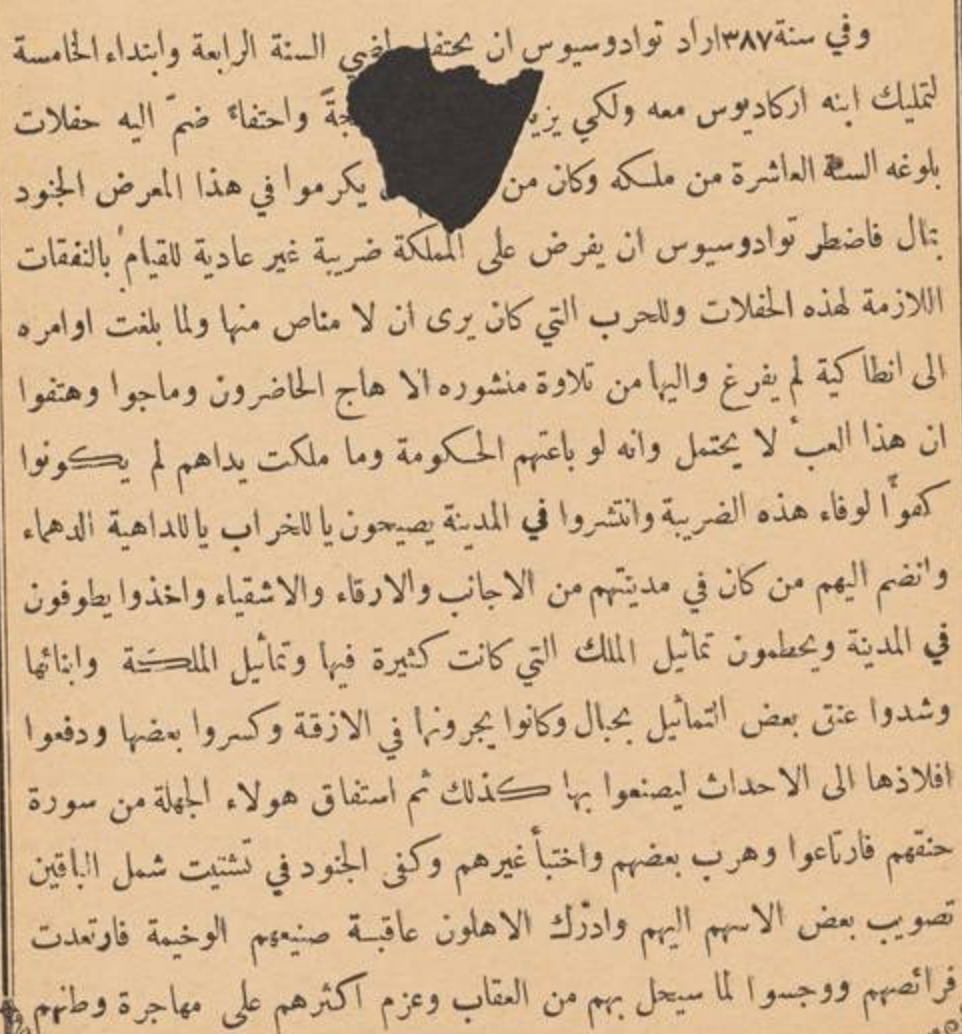 وفي سنة ٣٨٧ اراد توادوسيوس ان يحتفل السنة الرابعة وابتداء الخامسة
لتمليك ابنه اركاديوس معه ولكي واحتفاءً ضمّ اليه حفلات
بلوغه السنة العاشرة من ملكه وكان من يكرموا في هذا المعرض الجنود
بمال فاضطر توادوسيوس ان يفرض على المملكة ضريبة غير عادية للقيام بالنفقات
اللازمة لهذه الحفلات وللحرب التي كان يرى ان لا مناص منها ولما بلغت اوامره
الى انطاكية لم يفرغ واليها من تلاوة منشوره الا هاج الحاضرون وماجوا وهتفوا
ان هذا العبْ لا يحتمل وانه لو باعتهم الحكومة وما ملكت يداهم لم يكونوا
كفوًا لوفاء هذه الضريبة وانتشروا في المدينة يصيحون يا للخراب يا للداهية الدهماء
وانضم اليهم من كان في مدينتهم من الاجانب والارقاء والاشقياء واخذوا يطوفون
في المدينة ويحطمون تماثيل الملك التي كانت كثيرة فيها وتماثيل الملكة وابنائها
وشدوا عنق بعض التماثيل بحبال وكانوا يجرونها في الازقة وكسروا بعضها ودفعوا
افلاذها الى الاحداث ليصنعوا بها كذلك ثم استفاق هولاء الجهلة من سورة
حنقهم فارتاعوا وهرب بعضهم واختبأ غيرهم وكفى الجنود في تشتيت شمل الباقين
تصويب بعض الاسهم اليهم وادرك الاهلون عاقبة صنيعهم الوخيمة فارتعدت
فرائصهم ووجسوا لما سيحل بهم من العقاب وعزم اكثرهم على مهاجرة وطنهم